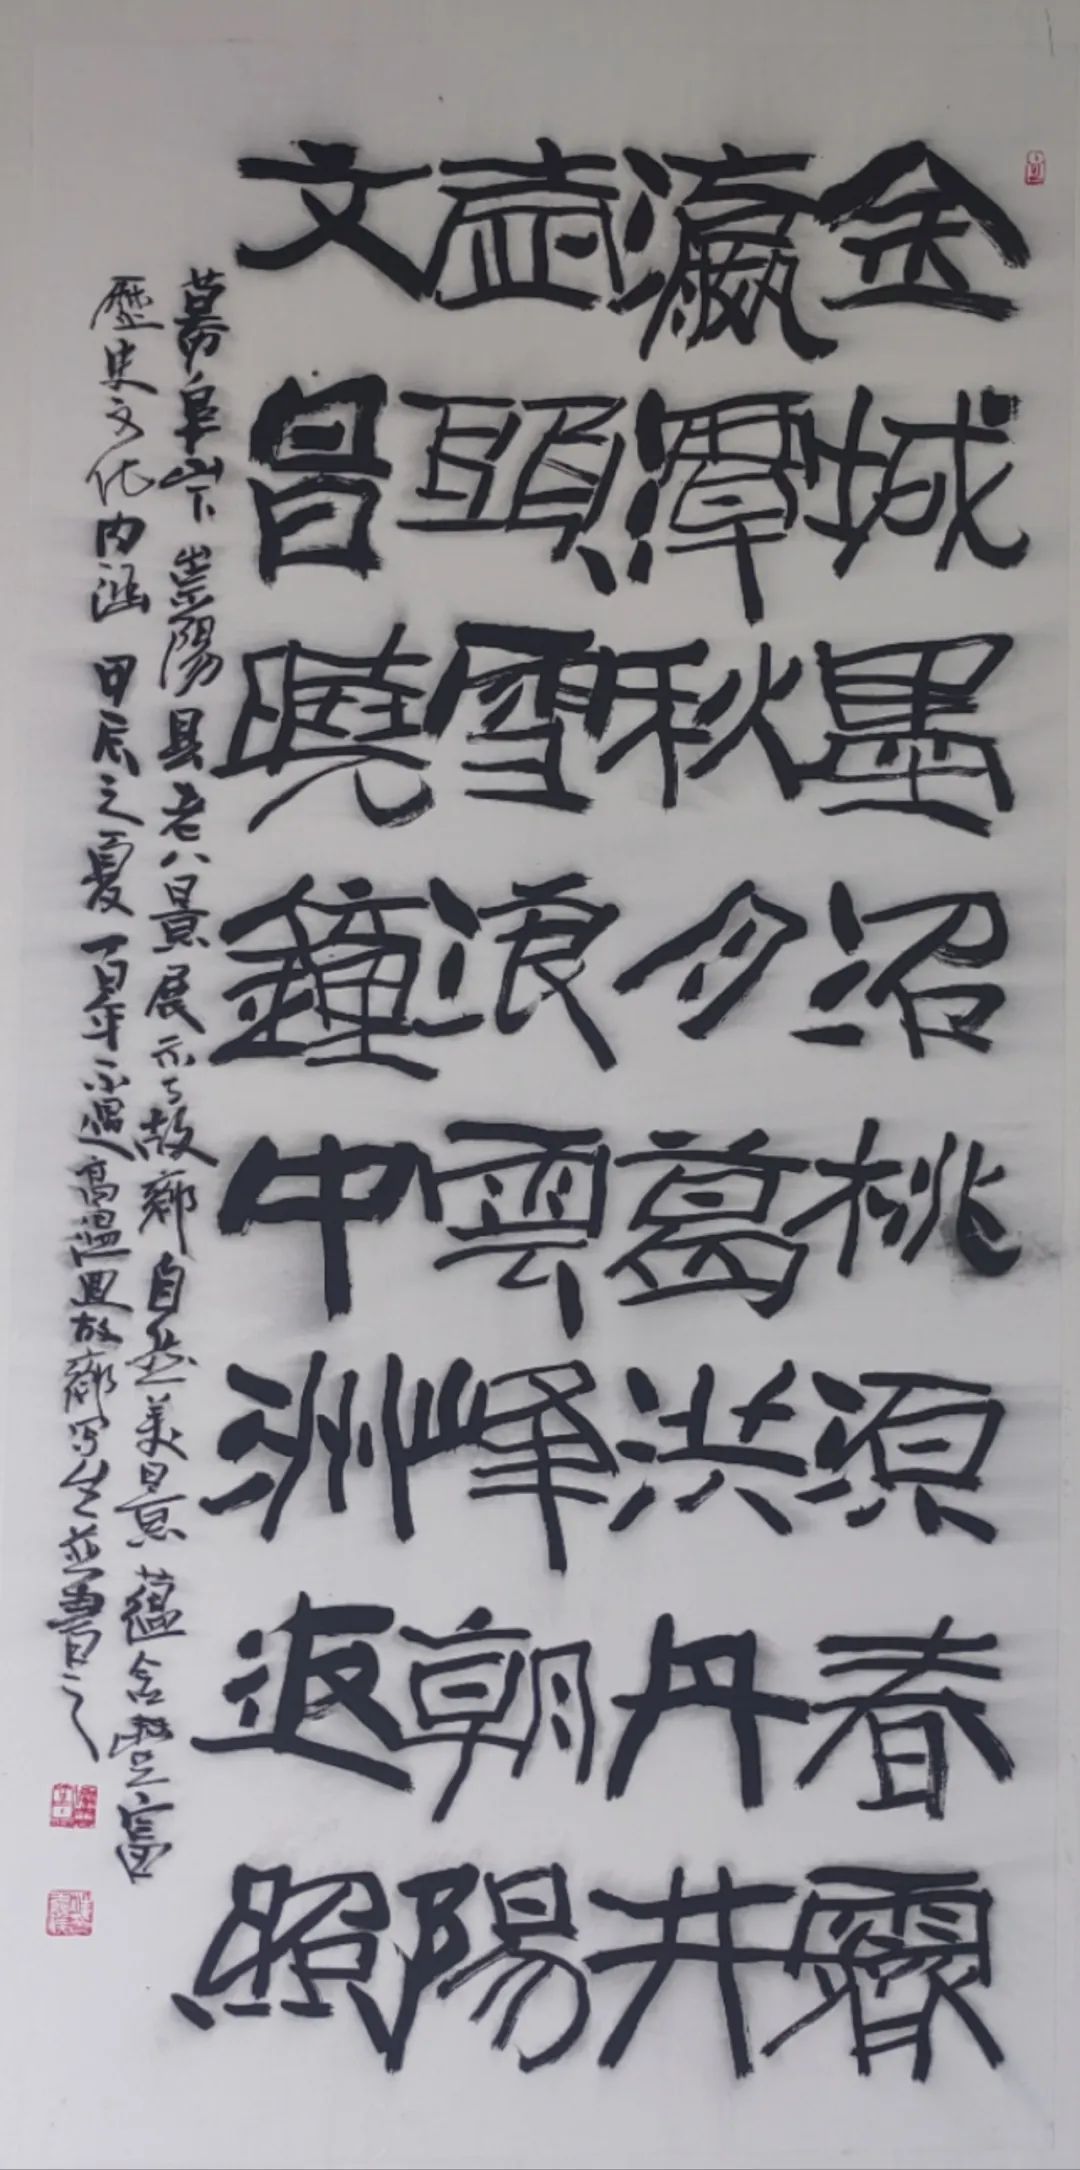 金城墨沼桃源春霽
瀛潭秋月葛洪丹井
壺頭雪浪雲峰朝陽
文昌曉鐘中洲返照
幕阜山下崇陽县老八景展示了故鄉自然美景蕴含豐富
歷史文化内涵甲辰之夏百年不遇高温回故鄉写生並書之